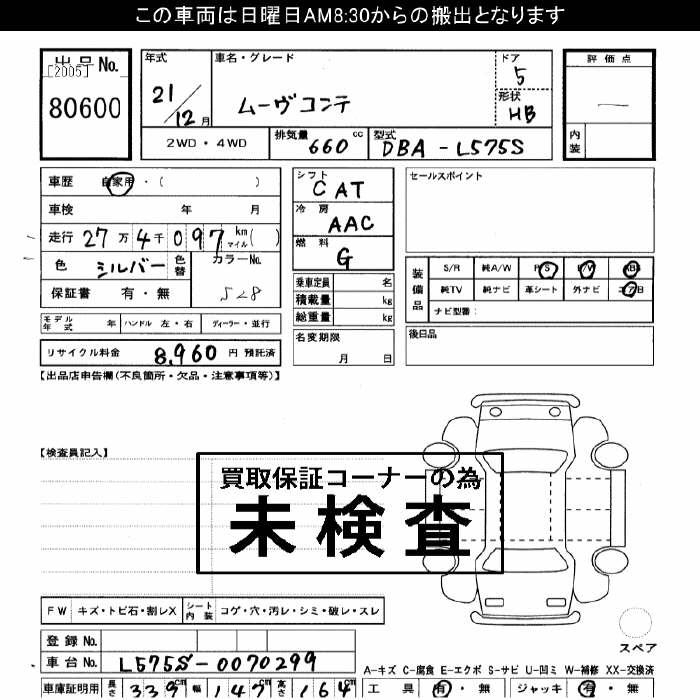 この車両は日曜日AM8:30からの搬出となります
出品No.
[2005]
80600
年式
21/12月
車名・グレード
ムーヴコンテ
ドア
5
形状
HB
評価点
―
内装
2WD・4WD
排気量 660 cc
型式 DBA-L575S
車歴 自家用・( )
車検 年 月
走行 27万4千097 km マイル( )
色 シルバー 色替 カラーNo.
528
保証書 有・無
モデル年式 年 ハンドル 左・右 ディーラー・並行
リサイクル料金 8,960 円 預託済
シフト
CAT
冷房
AAC
燃料
G
乗車定員 名
積載量 kg
総重量 kg
名変期限
月 日
セールスポイント
装備品
S/R 純A/W P/S P/W ABS
純TV 純ナビ 革シート 外ナビ エアB
ナビ型番:
後日品
【出品店申告欄(不良箇所・欠品・注意事項等)】
【検査員記入】
買取保証コーナーの為
未検査
FW キズ・トビ石・割レX シート内装 コゲ・穴・汚レ・シミ・破レ・スレ
スペア
登録No.
車台No. L575S-0070299
A-キズ C-腐食 E-エクボ S-サビ U-凹ミ W-補修 XX-交換済
車庫証明用 長さ 339cm 幅 147cm 高さ 164cm
工具 有・無 ジャッキ 有・無